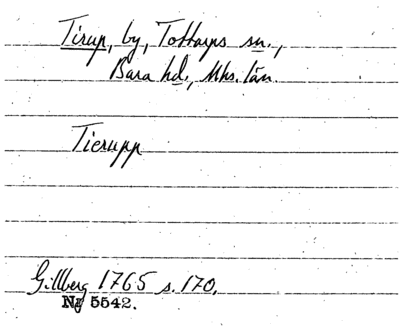 Tirup, by, Tottarps sn.,
Bara hd, Mhs. län
Tierupp
Gillberg 1765 s. 170.
Ny 5542.